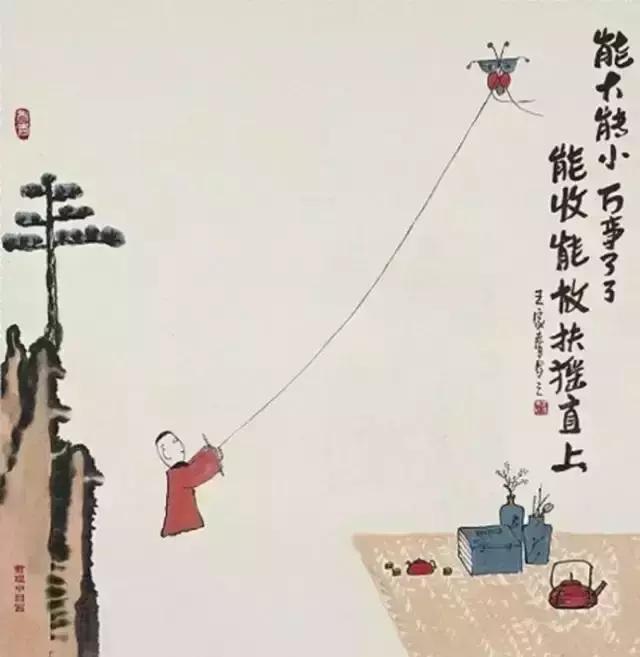 能大能小万事了了
能收能放扶摇直上
王家春画之